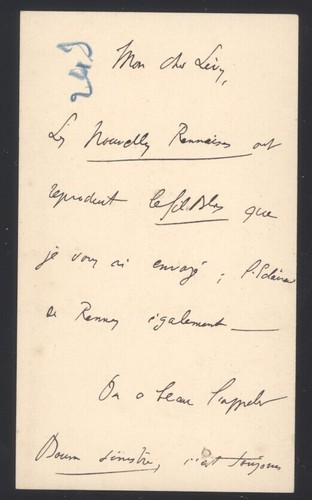 249
Mon cher Lévy,
Les Nouvelles Rennaises ont
reproduit le Gil Blas que
je vous ai envoyé ; l'Eclaireur
de Rennes également —
On a beau l'appeler
sinistre, c'est toujours